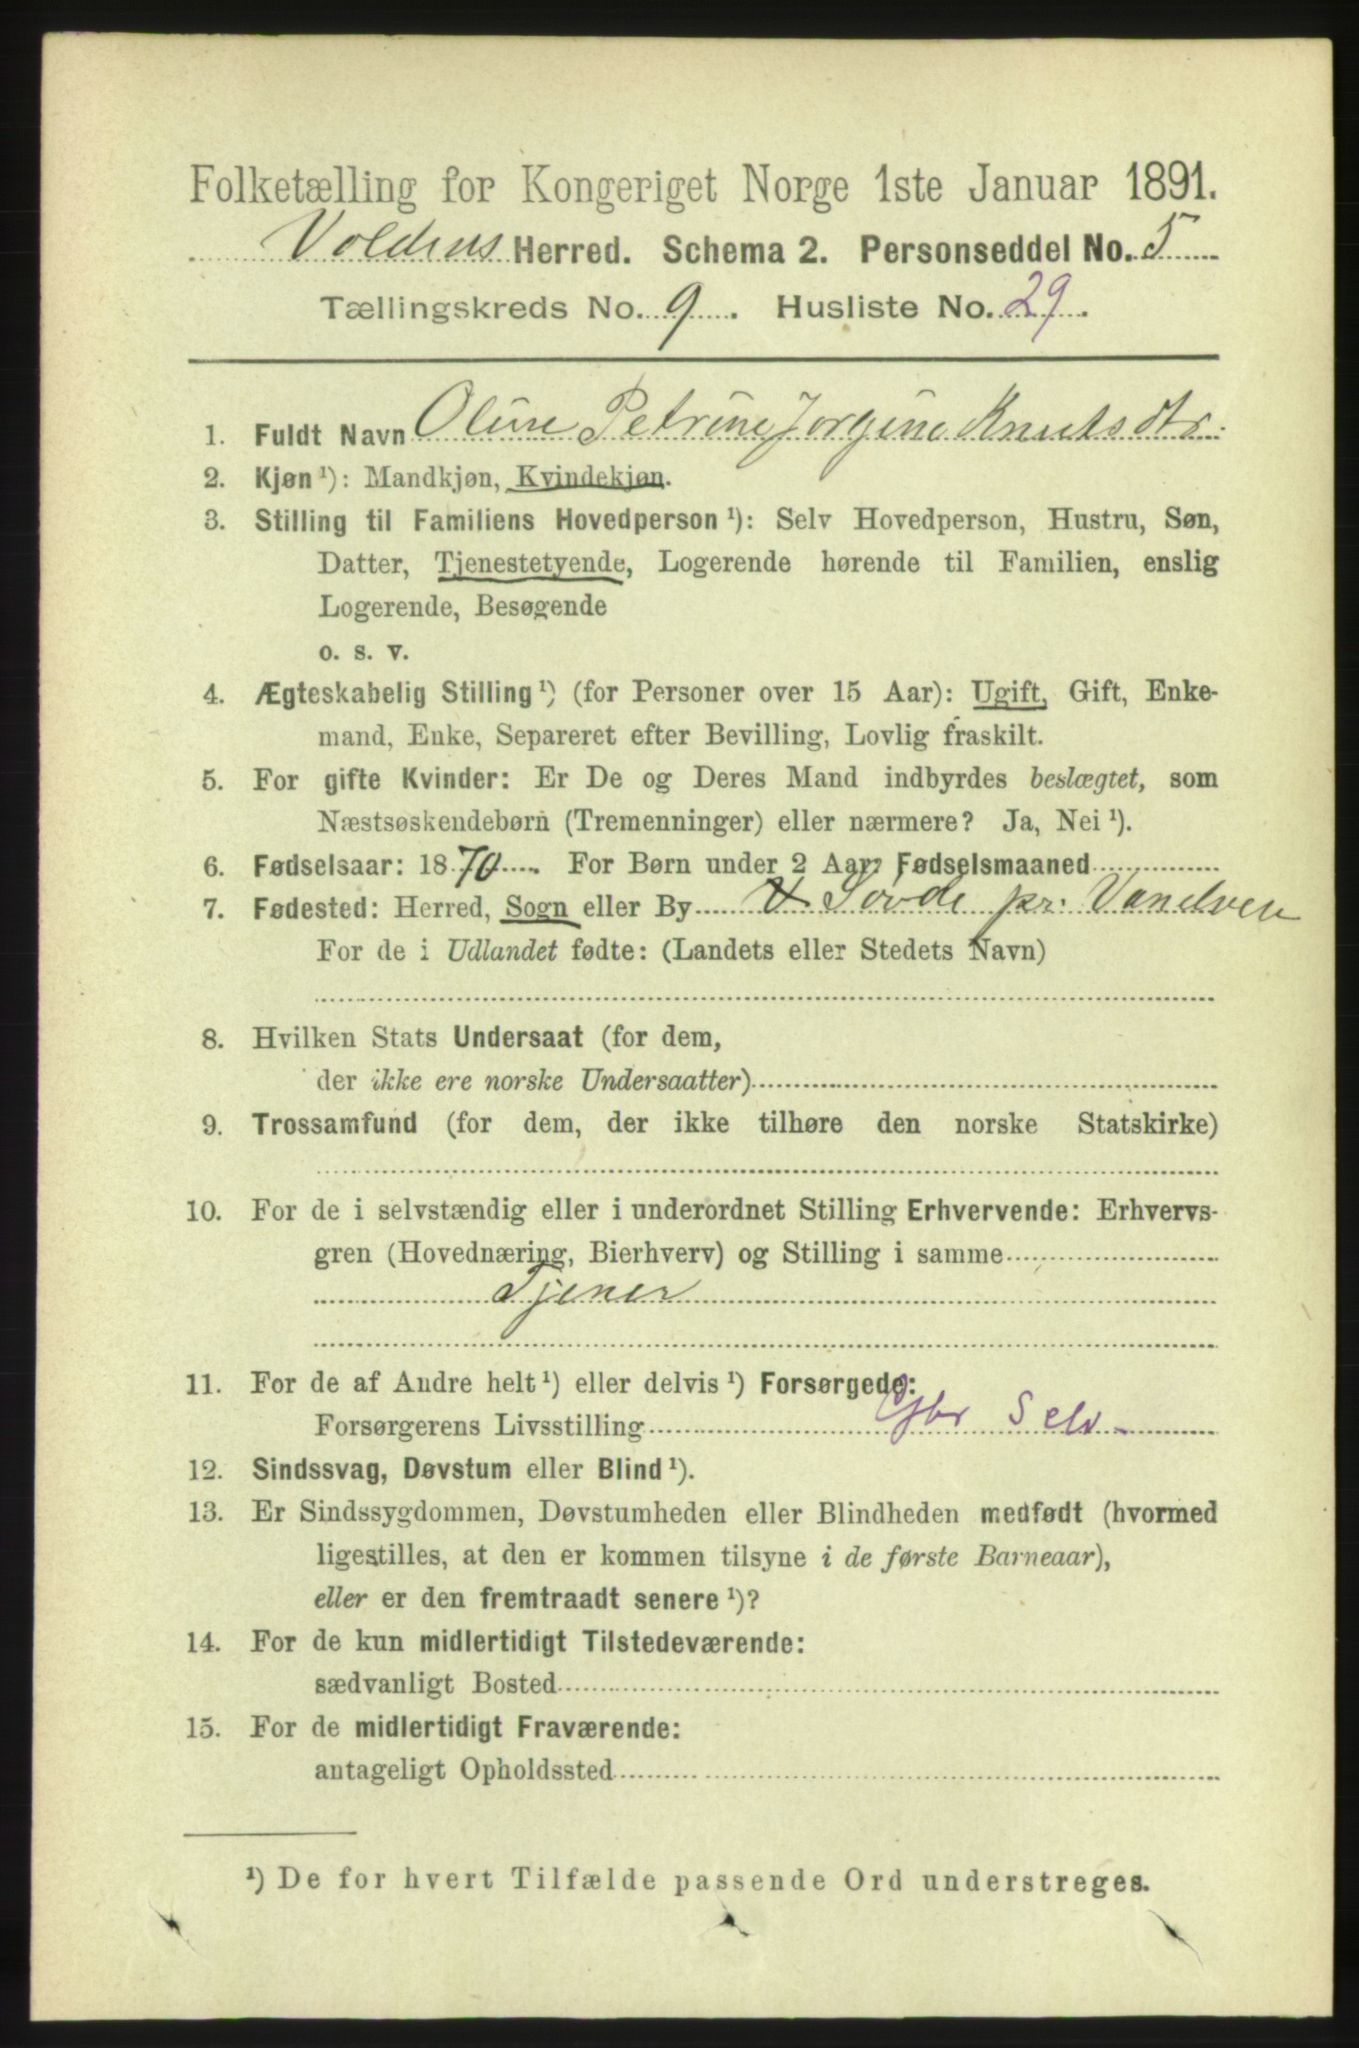 Folketælling for Kongeriget Norge 1ste Januar 1891.
Voldens Herred. Schema 2. Personseddel No. 5
Tællingskreds No. 9. Husliste No. 29.
1. Fuldt Navn Oline Petrine Jorgine Knutsdtr.
2. Kjøn ¹): Mandkjøn, Kvindekjøn.
3. Stilling til Familiens Hovedperson ¹): Selv Hovedperson, Hustru, Søn,
Datter, Tjenestetyende, Logerende hørende til Familien, enslig
Logerende, Besøgende
o. s. v.
4. Ægteskabelig Stilling ¹) (for Personer over 15 Aar): Ugift, Gift, Enke-
mand, Enke, Separeret efter Bevilling, Lovlig fraskilt.
5. For gifte Kvinder: Er De og Deres Mand indbyrdes beslægtet, som
Næstsøskendebørn (Tremenninger) eller nærmere? Ja, Nei ¹).
6. Fødselsaar: 1870. For Børn under 2 Aar: Fødselsmaaned
7. Fødested: Herred, Sogn eller By Søvde pr. Vanelven
For de i Udlandet fødte: (Landets eller Stedets Navn)
8. Hvilken Stats Undersaat (for dem,
der ikke ere norske Undersaatter)
9. Trossamfund (for dem, der ikke tilhøre den norske Statskirke)
10. For de i selvstændig eller i underordnet Stilling Erhvervende: Erhvervs-
gren (Hovednæring, Bierhverv) og Stilling i samme
Tjener
11. For de af Andre helt ¹) eller delvis ¹) Forsørgede:
Forsørgerens Livsstilling Gbr Selv
12. Sindssvag, Døvstum eller Blind ¹).
13. Er Sindssygdommen, Døvstumheden eller Blindheden medfødt (hvormed
ligestilles, at den er kommen tilsyne i de første Barneaar),
eller er den fremtraadt senere ¹)?
14. For de kun midlertidigt Tilstedeværende:
sædvanligt Bosted
15. For de midlertidigt Fraværende:
antageligt Opholdssted
¹) De for hvert Tilfælde passende Ord understreges.